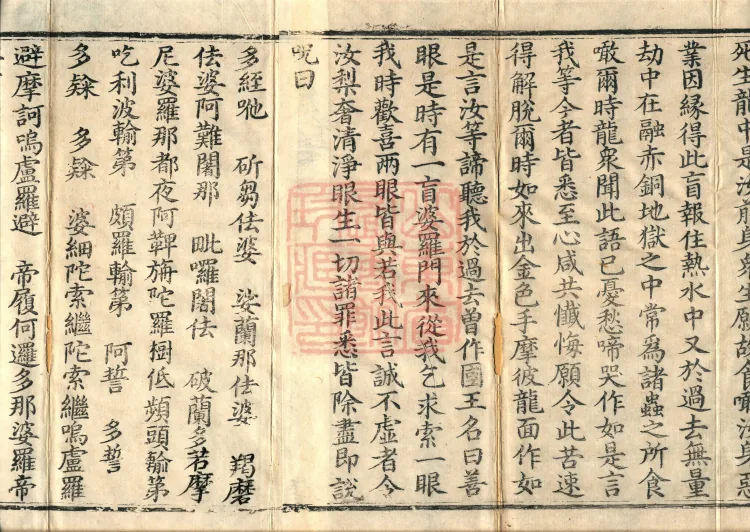 死生龍中是汝前身眾生願故食噉汝身惡
業因緣得此盲報住熱水中又於過去無量
劫中在融赤銅地獄之中常為諸蟲之所食
噉爾時龍眾聞此語已憂愁啼哭作如是言
我等今者皆悉至心咸共懺悔願令此苦速
得解脫爾時如來出金色手摩彼龍面作如
是言汝等諦聽我於過去曾作國王名曰善
眼是時有一盲婆羅門來從我乞求索一眼
我時歡喜兩眼皆與若我此言誠不虛者令
汝梨奢清淨眼生一切諸罪悉皆除盡即說
呪曰
多經咃 斫芻佉婆 娑蘭那佉婆 羯磨
佉婆阿難闍那 毗囉闍佉 破蘭多若摩
尼婆羅那都夜阿鞞旃陀羅樹低頻頭輸第
吃利波輸第 頗羅輸第 阿誓 多誓
多繇 多繇 婆細陀索繼陀索繼嗚盧羅
避摩訶嗚盧羅避 帝履何邏多那婆羅帝